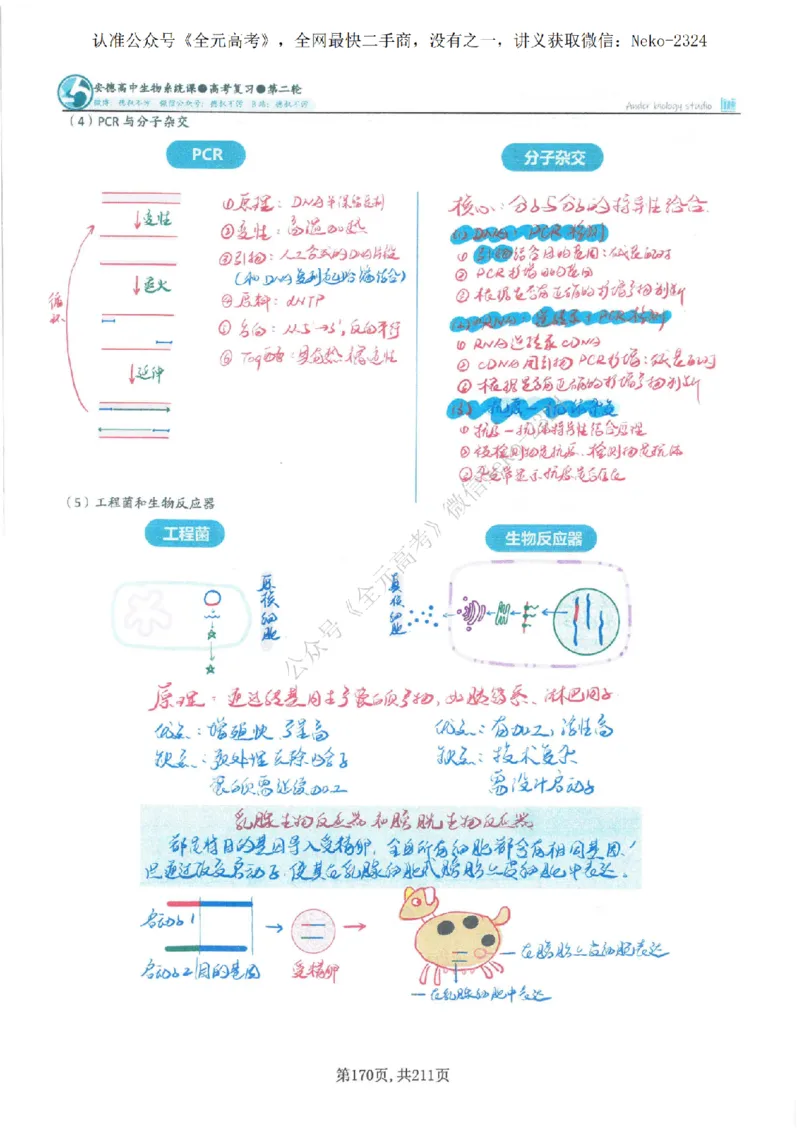 认准公众号《全元高考》，全网最快二手商，没有之一，讲义获取微信：Neko-2324
安德高中生物系统课●高考复习●第二轮
Ander biology studio
（4）PCR 与分子杂交
PCR
变性
退火
延伸
循环
①原理：DNA半保留复制
②变性：高温加热
③引物：人工合成的DNA片段
（和DNA复制起始端结合）
④原料：dNTP
⑤方向：从5'→3'，反向平行
⑥Taq酶：具有热稳定性
分子杂交
核心：分子与分子的特异性结合
(1) DNA：PCR检测
①引物结合目的基因：碱基配对
②PCR扩增目的基因
③根据是否有正确的扩增产物判断
(2) RNA：逆转录+PCR检测
①RNA逆转录cDNA
②cDNA用引物PCR扩增：碱基配对
③根据是否有正确的扩增产物判断
(3) 抗原—抗体杂交
①抗原—抗体特异性结合原理
②被检测物是抗原、检测物是抗体
③杂交带显示抗原是否存在
（5）工程菌和生物反应器
工程菌
生物反应器
原核细胞
真核细胞
公众号《全元高考》微信
原理：通过转基因生产蛋白质产物，如胰岛素、淋巴因子
优点：增殖快、产量高
缺点：预处理去除内含子
蛋白质需继续加工
优点：有加工，活性高
缺点：技术复杂
需设计启动子
乳腺生物反应器和膀胱生物反应器
都是将目的基因导入受精卵，全身所有细胞都含有相同基因！
只通过改变启动子，使其在乳腺细胞或膀胱上皮细胞中表达。
启动子1
启动子2 目的基因
受精卵
在膀胱上皮细胞表达
在乳腺细胞中表达
第170页,共211页